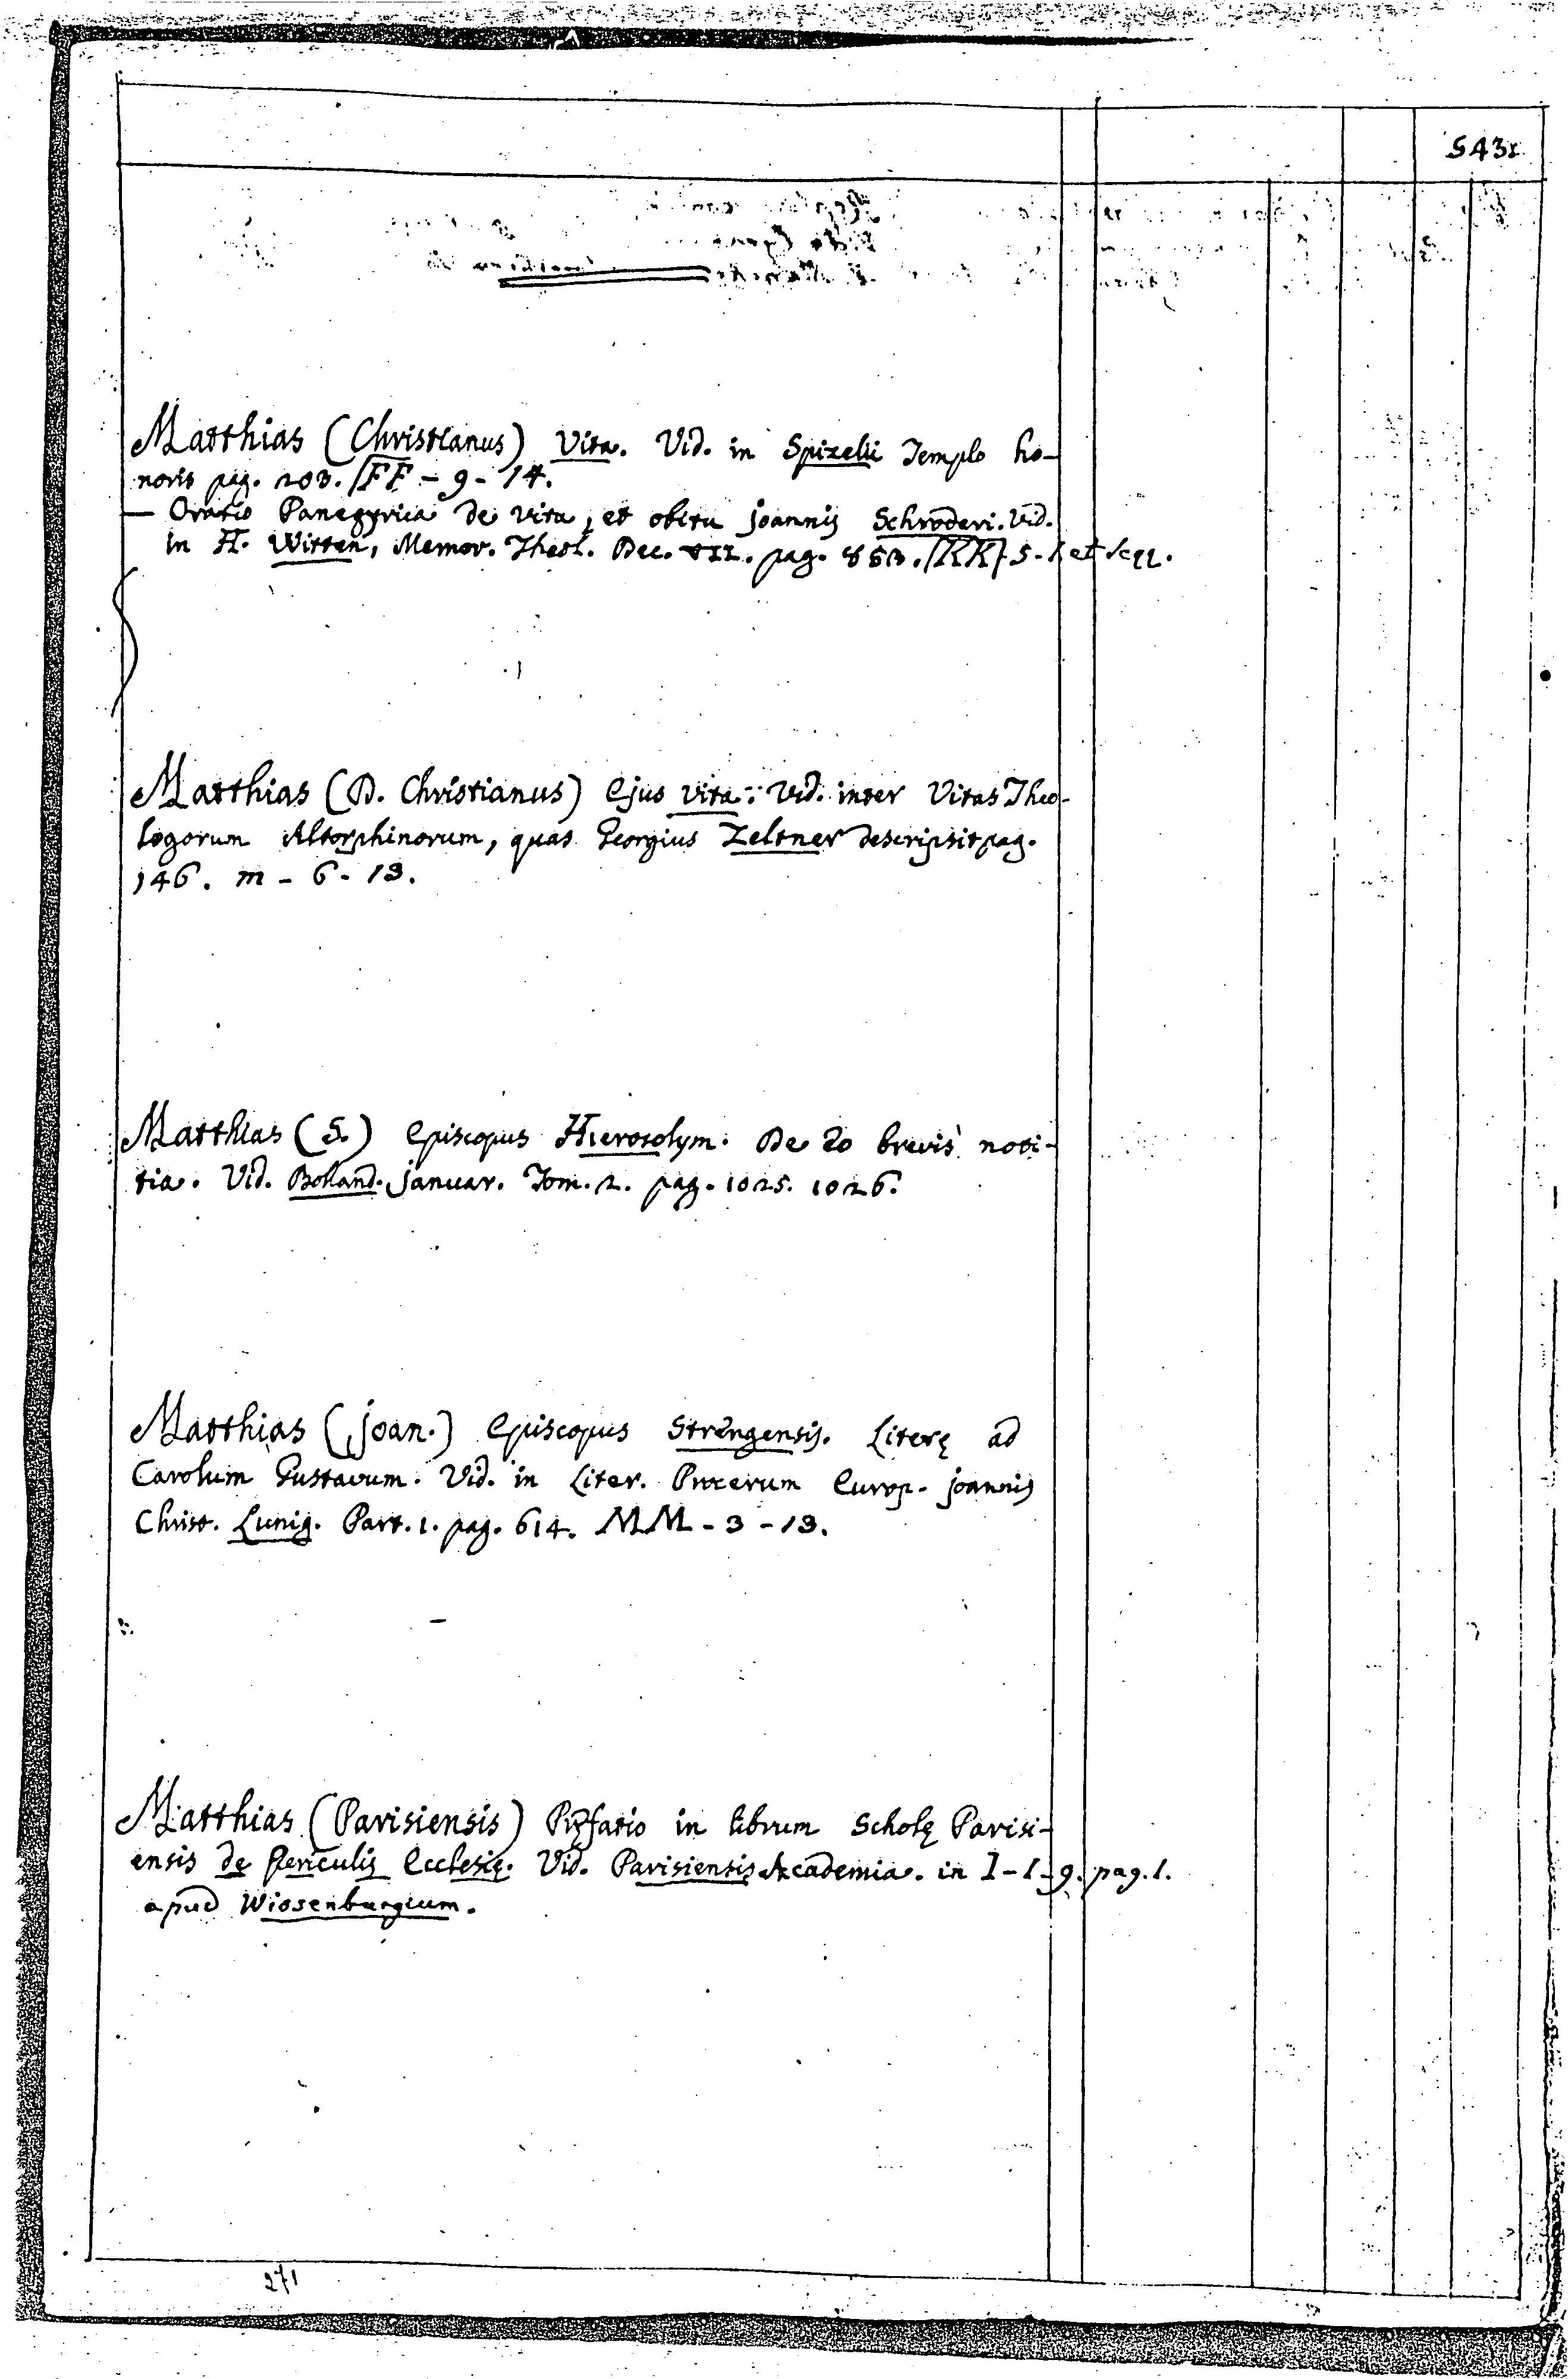 5431
Matthias (Christianus) Vita. Vid. in Spizelii Templo ho-
noris pag. 203. FF - 9 - 14.
— Oratio Panegyrica de vita, et obitu joannis Schroderi. Vid.
in H. Witten, Memor. Theol. Dec. VII. pag. 853. KK - 5 - 1 et seqq.
Matthias (D. Christianus) Ejus vita: Vid. inter Vitas Theo-
logorum Altorphinorum, quas Georgius Zeltner descripsit pag.
146. m - 6 - 13.
Matthias (S.) Episcopus Hierosolym. De Eo brevis noti-
tia. Vid. Bolland. Januar. Tom. 2. pag. 1025. 1026.
Matthias (Joan.) Episcopus Strengensis. Literę ad
Carolum Gustavum. Vid. in Liter. Procerum Europ. joannis
Christ. Lunig. Part. 1. pag. 614. MM - 3 - 13.
Matthias (Parisiensis) Pręfatio in librum Scholę Parisi-
ensis de Periculis Ecclesię. Vid. Parisiensis Academia. in I - I - 9. pag. 1.
apud Wissenburgium.
271